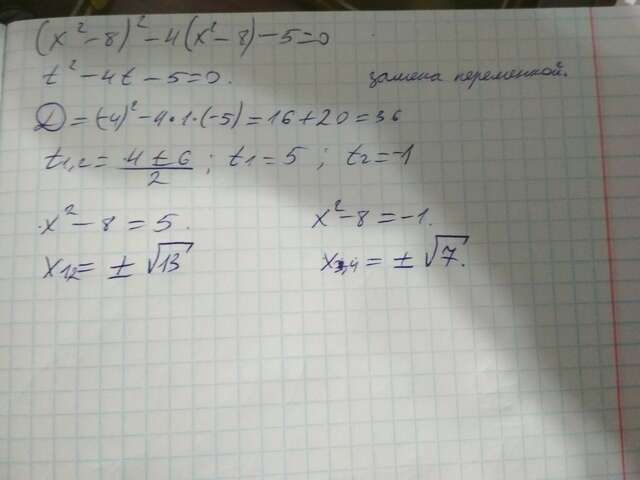 (x²-8)²-4(x²-8)-5=0
t²-4t-5=0. замена переменной.
D=(-4)²-4·1·(-5)=16+20=36
t₁,₂=(4±6)/2; t₁=5; t₂=-1
x²-8=5. x²-8=-1.
x₁,₂=±√13 x₃,₄=±√7.